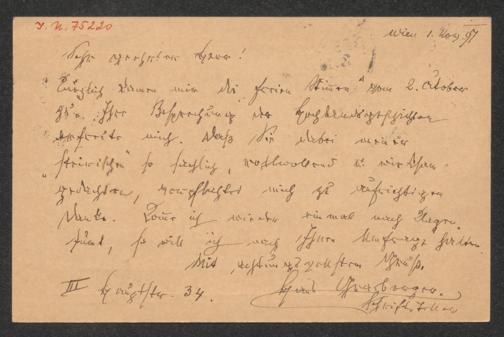 I. N. 75220
Wien 1. Nov. 97
Sehr geehrter Herr!
Kürzlich kamen mir die "Freien Stimmen" vom 2. October
zu. Ihre Besprechung der Hochlandsgeschichten
erfreute mich. Daß Sie dabei meiner
"steirischen" so sachlich, wohlwollend u. wirksam
gedachten, verpflichtet mich zu aufrichtigem
Danke. Komme ich wieder einmal nach Klagen-
furt, so will ich nach Ihnen Umfrage halten.
Mit achtungsvollstem Gruß,
III Hauptstr. 34. Hans Grasberger.
Schriftsteller